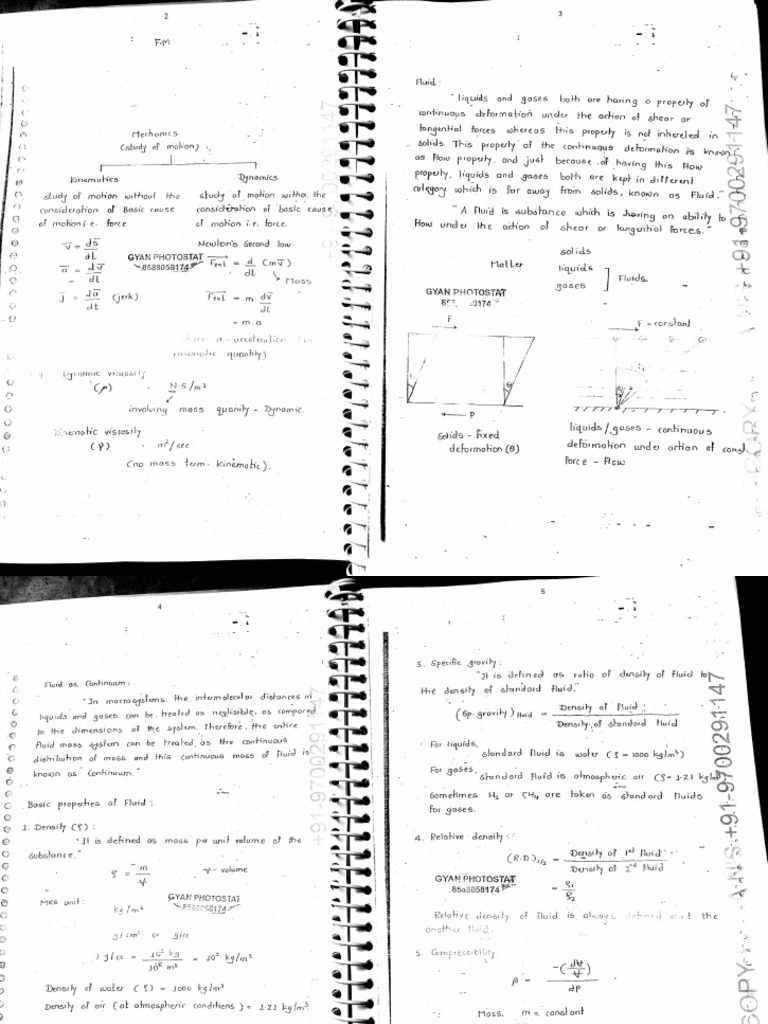 2
F.M
Mechanics
(study of motion)
Kinematics
study of motion without the
consideration of Basic cause
of motion i.e. force.
v̅ = ds̅/dt
a̅ = dv̅/dt
J̅ = da̅/dt (jerk)
Dynamics
study of motion with the
consideration of basic cause
of motion i.e. force.
Newton's second law
F̅ext = d/dt (mv̅)
Mass
F̅ext = m. dv̅/dt
= m.a
where a - acceleration
kinematic quantity)
GYAN PHOTOSTAT
Dynamic viscosity
(μ) - N.s/m²
involving mass quantity - Dynamic.
Kinematic viscosity
- m²/sec
(no mass term - kinematic).
3
Fluid:
"liquids and gases both are having a property of
continuous deformation under the action of shear or
tangential forces whereas this property is not inhereted in
solids. This property of the continuous deformation is known
as Flow property, and just because of having this Flow
property, liquids and gases both are kept in different
category which is far away from solids, known as Fluid."
"A fluid is substance which is having an ability to
Flow under the action of shear or tangential forces."
Matter
solids
liquids
gases
Fluids.
GYAN PHOTOSTAT
F
θ
θ
P
solids - fixed
deformation (θ)
F - constant
liquids/gases - continuous
deformation under action of const
force - Flow
+91-9700291147
4
Fluid as Continuum:
"In macrosystems, the intermolecular distances in
liquids and gases can be treated as negligible, as compared
to the dimensions of the system. Therefore, the entire
fluid mass system can be treated as the continuous
distribution of mass and this continuous mass of fluid is
known as "Continuum."
Basic properties of Fluid:
1. Density (ρ):
"It is defined as mass per unit volume of the
substance."
ρ = m/V
V - volume
GYAN PHOTOSTAT
MKS unit:
kg/m³
g/cm³ or g/cc
1 g/cc = 10⁻³ kg / 10⁻⁶ m³ = 10³ kg/m³
Density of water (ρ) = 1000 kg/m³
Density of air (at atmospheric conditions) = 1.21 kg/m³
+91-9700291147
5
3. Specific gravity:
"It is defined as ratio of density of fluid to
the density of standard fluid."
(Sp. gravity)fluid = Density of fluid / Density of standard fluid
For liquids,
standard fluid is water (ρ = 1000 kg/m³)
For gases,
standard fluid is atmospheric air (ρ = 1.21 kg/m³
Sometimes H₂ or CH₄ are taken as standard fluids
for gases.
4. Relative density:
(R.D.)₁/₂ = Density of 1st fluid / Density of 2nd fluid
= ρ₁/ρ₂
GYAN PHOTOSTAT
Relative density of fluid is always defined w.r.t the
another fluid.
5. Compressibility.
β = -(dV/V)/dP
Mass, m = constant
+91-9700291147
COPY